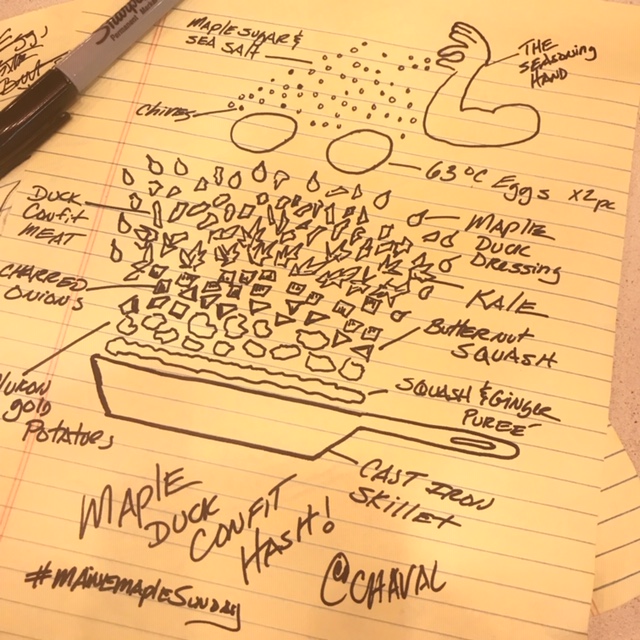 Sharpie
Permanent Marker
Eggs
MAPLE SUGAR &
SEA SALT
THE
SEASONING
HAND
Chives
63°C Eggs x2pc
DUCK
CONFIT
MEAT
MAPLE
DUCK
DRESSING
CHARRED
ONIONS
KALE
BUTTERNUT
SQUASH
YUKON
GOLD
POTATOES
SQUASH & GINGER
PUREÉ
CAST IRON
SKILLET
MAPLE
DUCK
CONFIT
HASH!
#MAINEMAPLESUNDAY
@CHAVAL